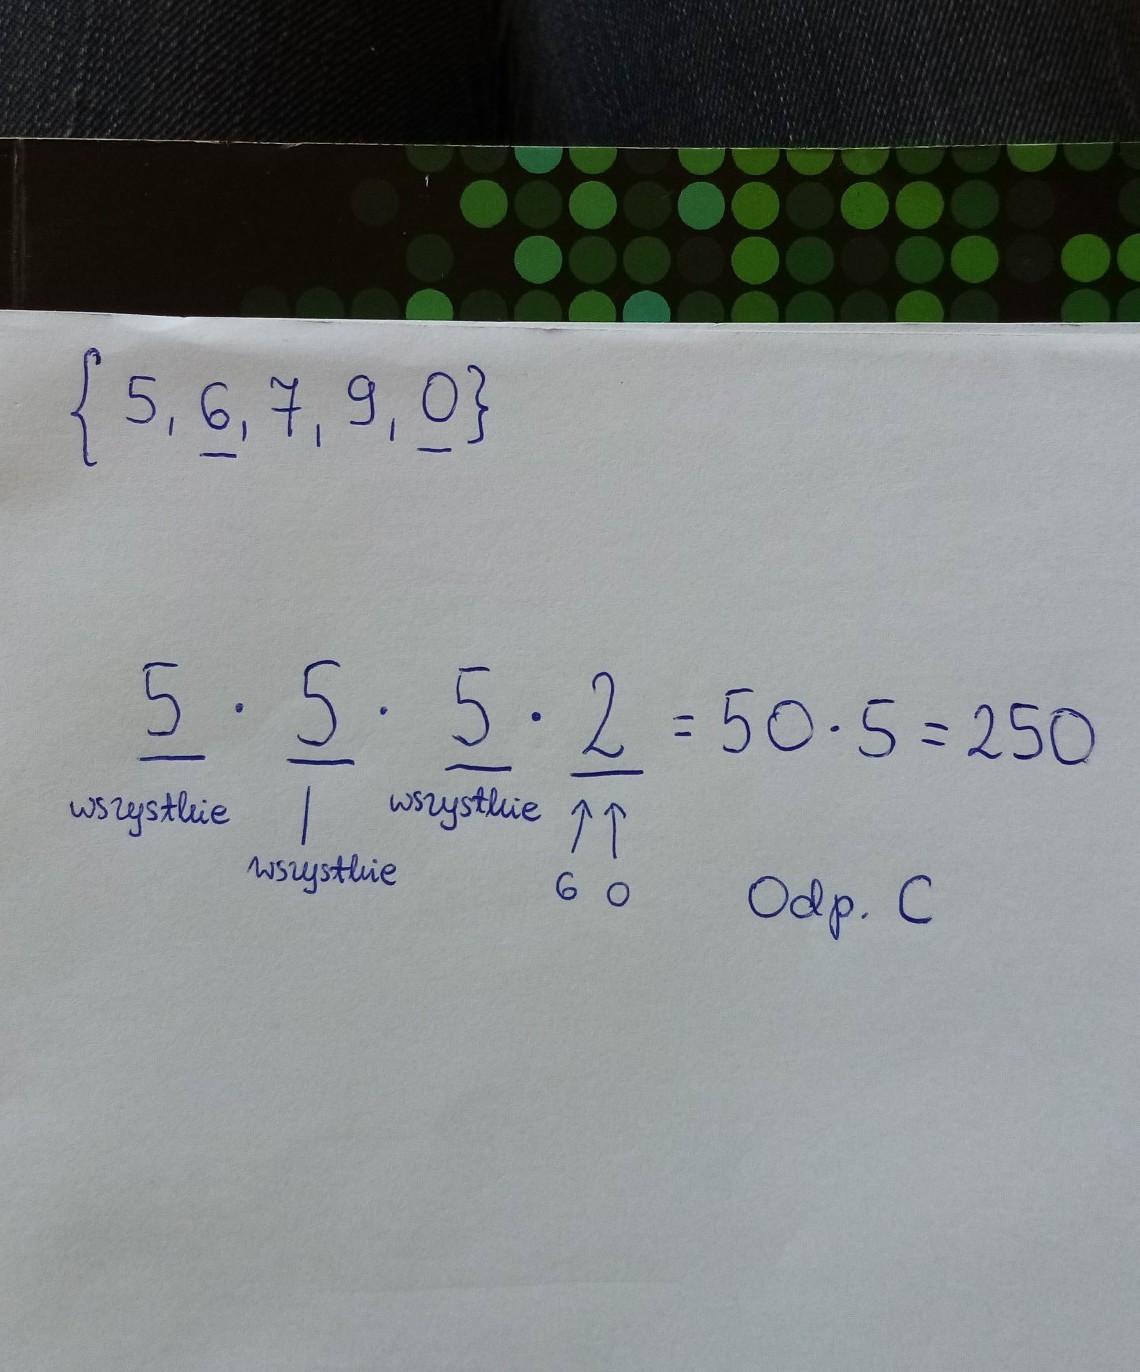 {5, 6, 7, 9, 0}
5 · 5 · 5 · 2 = 50 · 5 = 250
wszystkie wszystkie
wszystkie
6 0 Odp. C